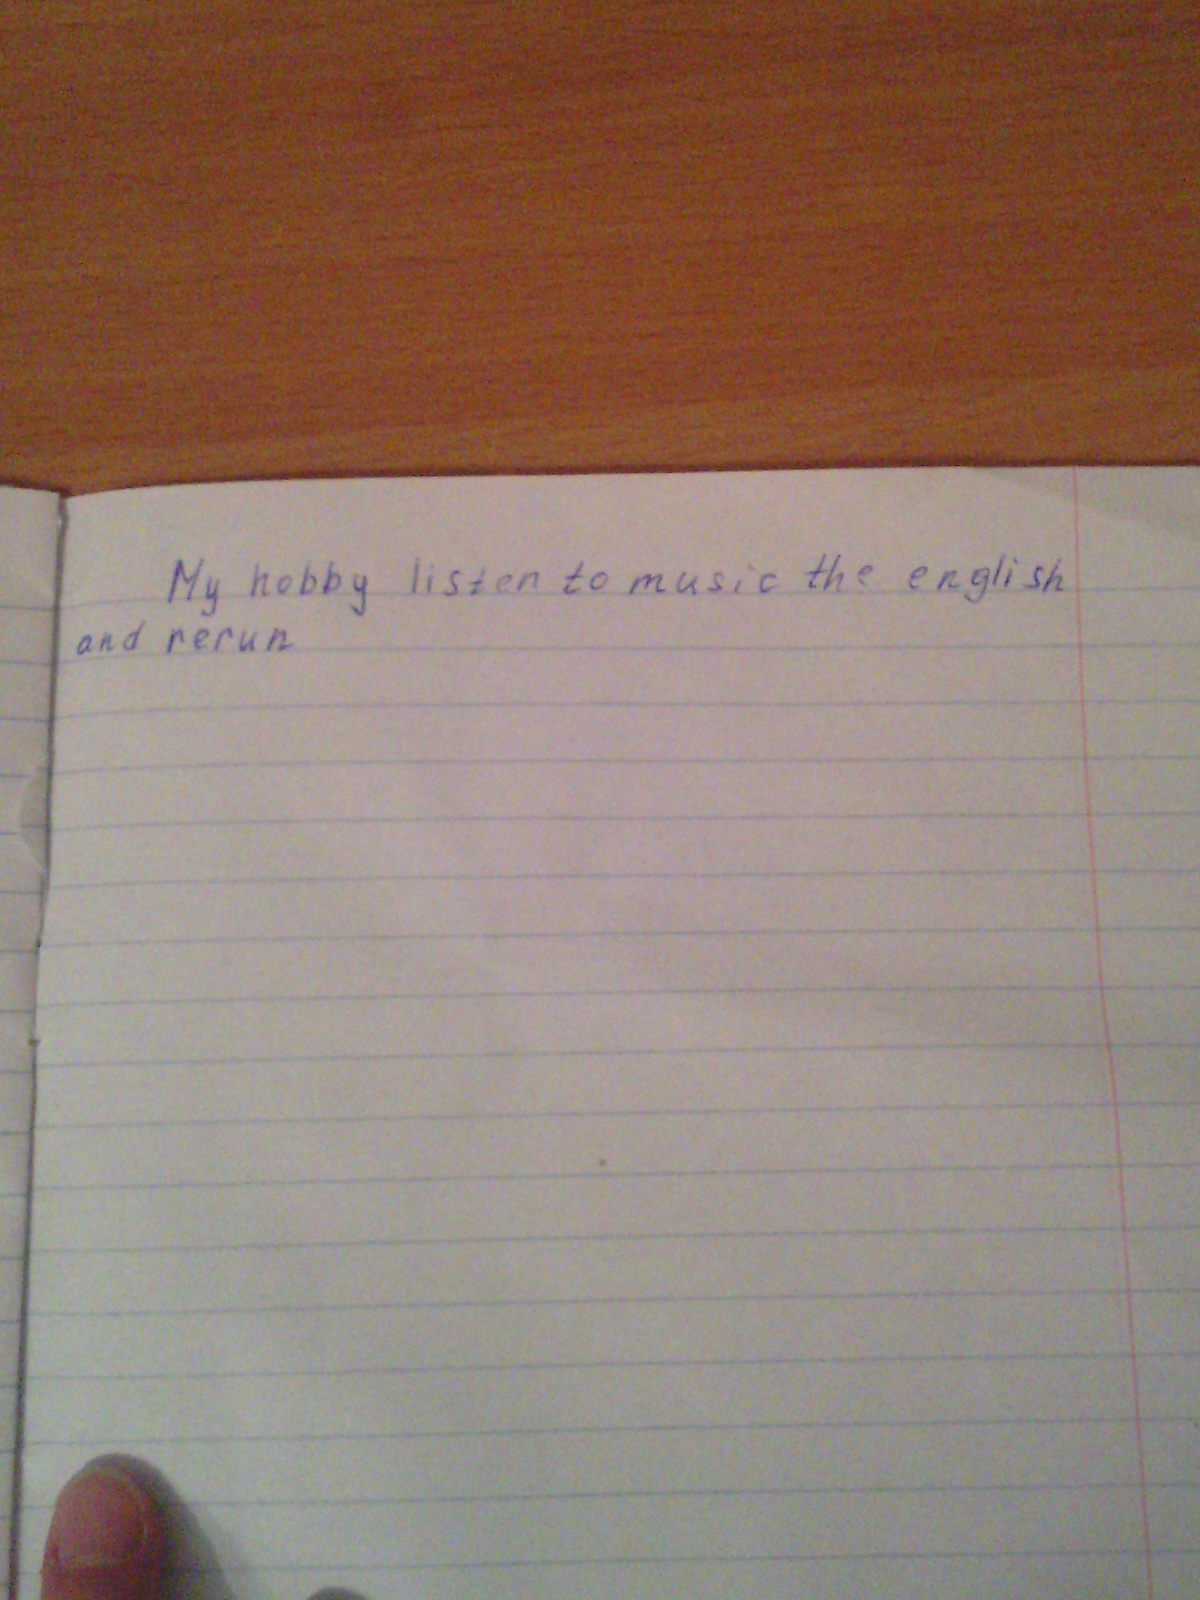 My hobby listen to music the english
and rerun